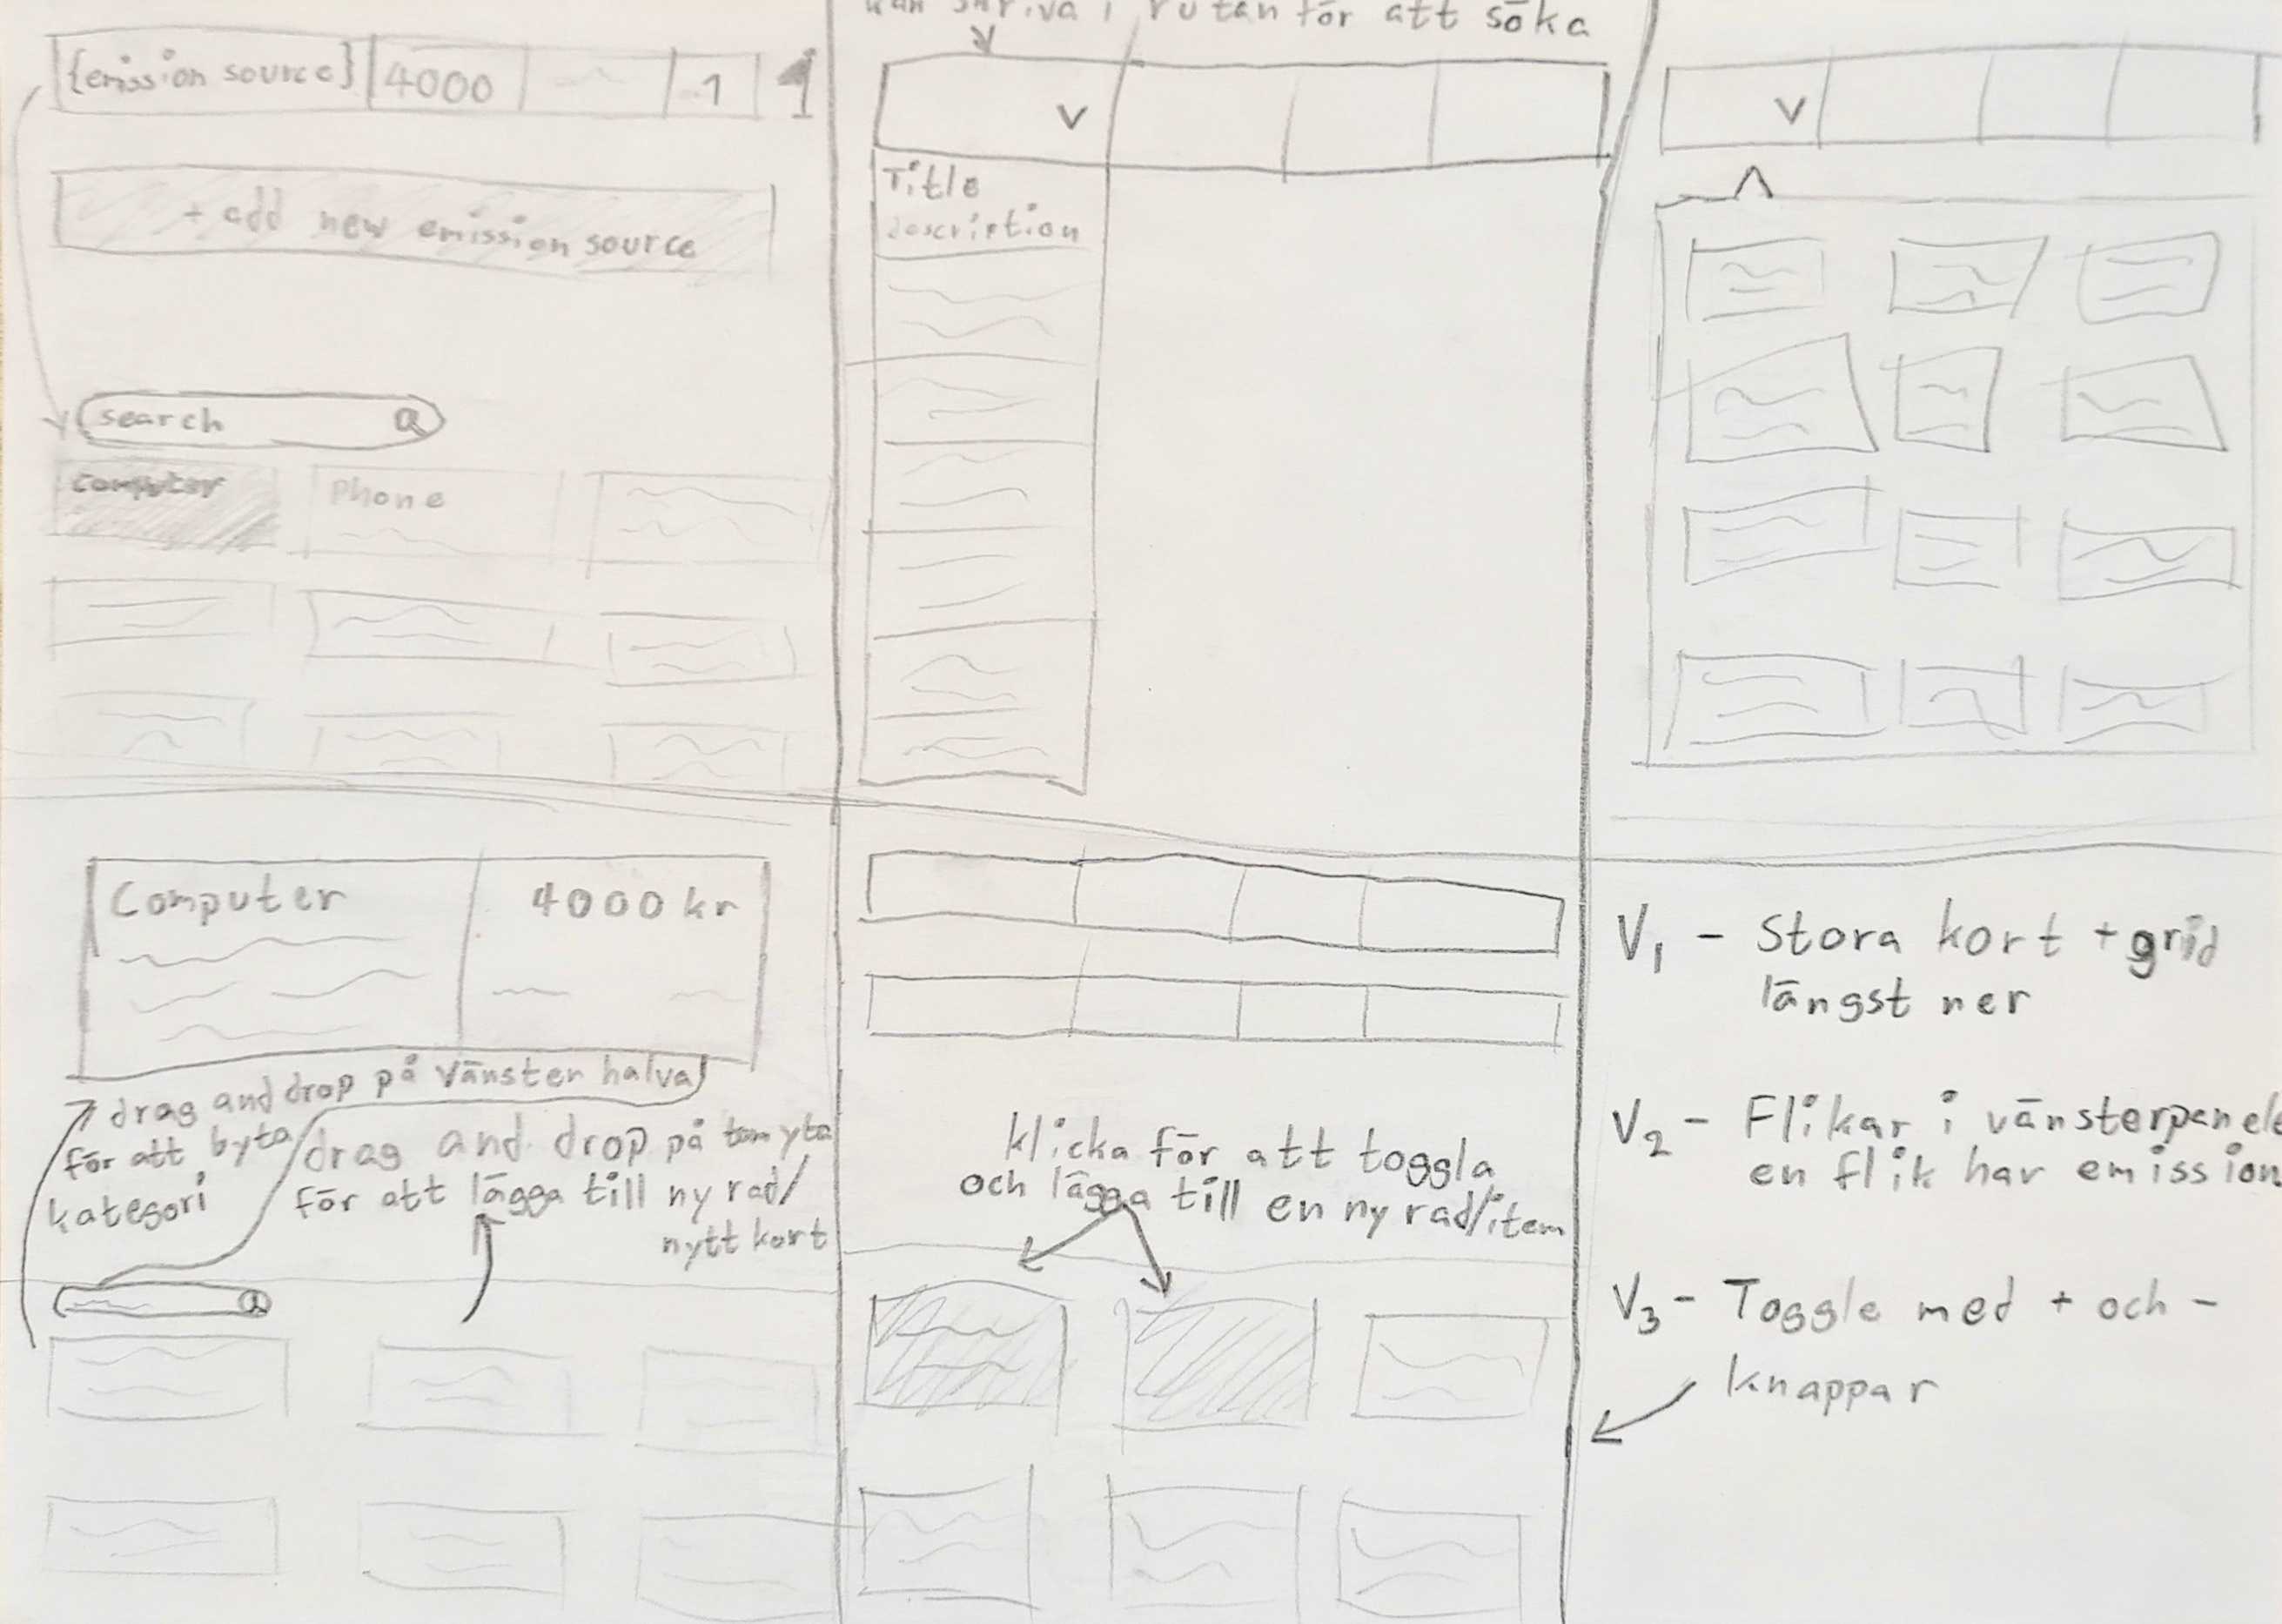 {emission source} 4000 1 1
+ add new emission source
search
Computer Phone
skriva i rutan för att söka
V
Title
description
V
Computer 4000 kr
drag and drop på vänster halva
för att byta
kategori
drag and drop på tom yta
för att lägga till ny rad/
nytt kort
klicka för att toggla
och lägga till en ny rad/item
V1 - Stora kort + grid
längst ner
V2 - Flikar i vänsterpanele
en flik har emission
V3 - Toggle med + och -
knappar